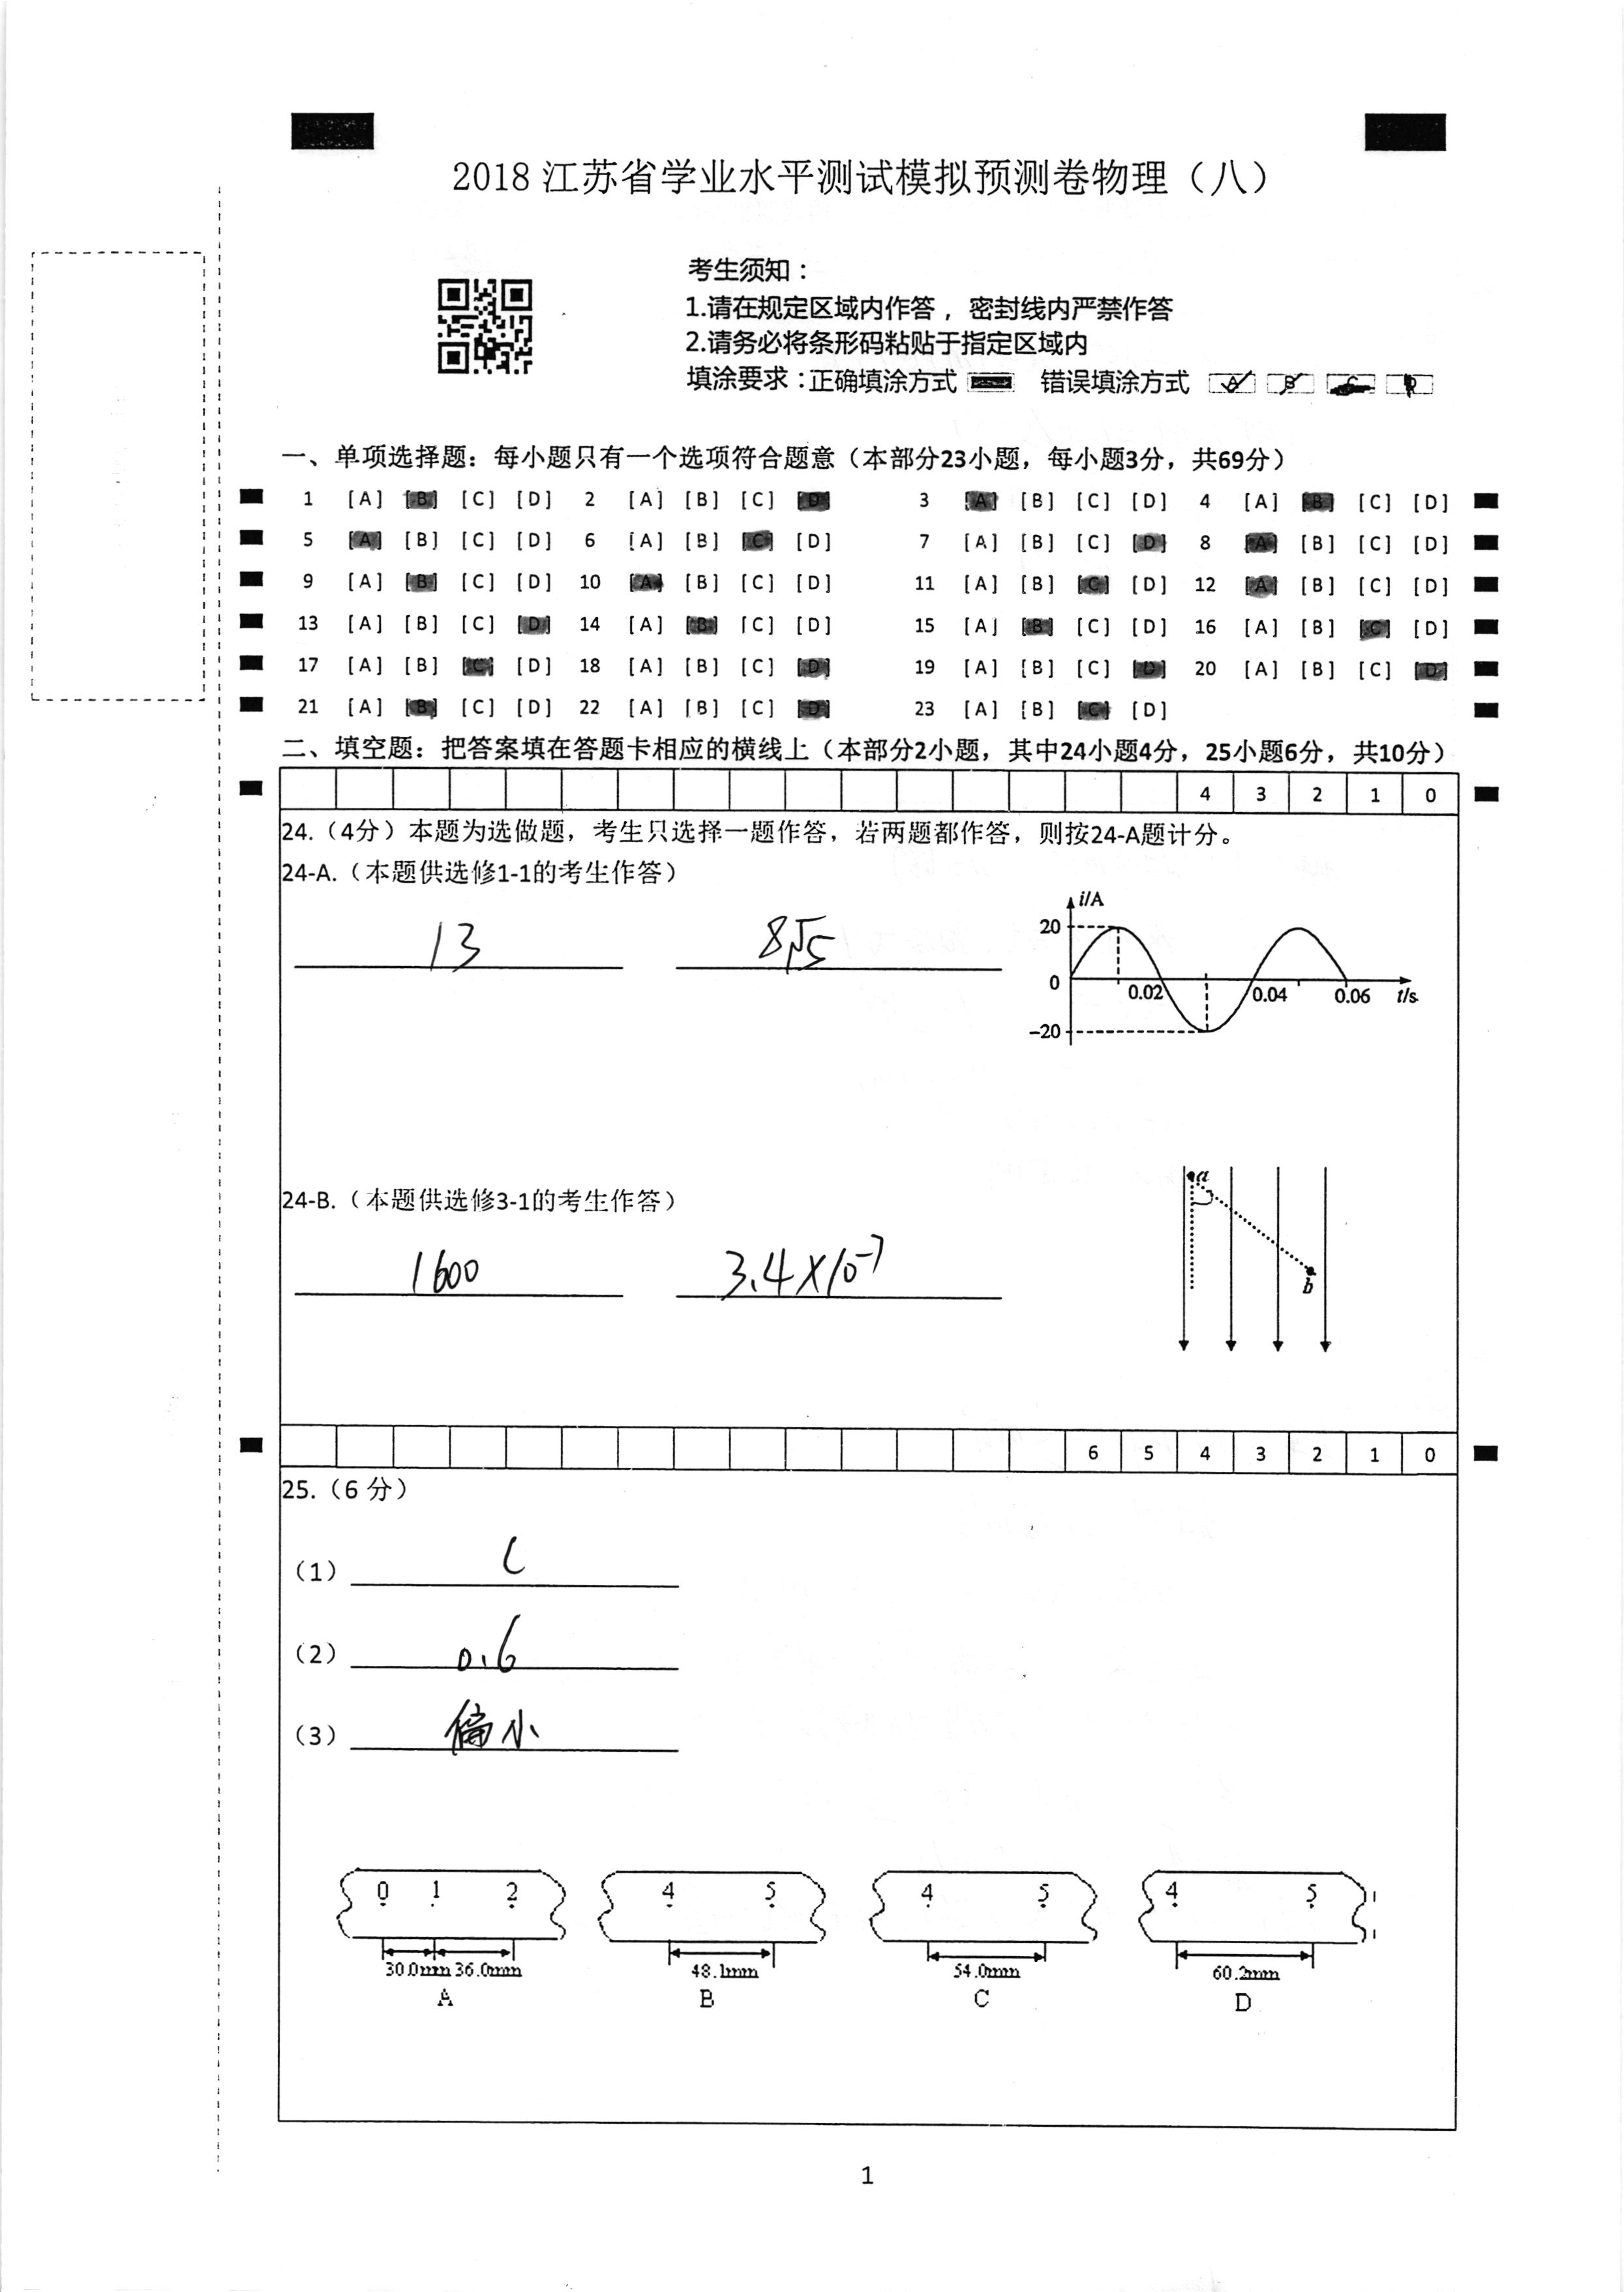 2018 江苏省学业水平测试模拟预测卷物理（八）
考生须知：
1.请在规定区域内作答，密封线内严禁作答
2.请务必将条形码粘贴于指定区域内
填涂要求：正确填涂方式 错误填涂方式 A B C D
一、单项选择题：每小题只有一个选项符合题意（本部分23小题，每小题3分，共69分）
1 [A] [B] [C] [D] 2 [A] [B] [C] [D] 3 [A] [B] [C] [D] 4 [A] [B] [C] [D]
5 [A] [B] [C] [D] 6 [A] [B] [C] [D] 7 [A] [B] [C] [D] 8 [A] [B] [C] [D]
9 [A] [B] [C] [D] 10 [A] [B] [C] [D] 11 [A] [B] [C] [D] 12 [A] [B] [C] [D]
13 [A] [B] [C] [D] 14 [A] [B] [C] [D] 15 [A] [B] [C] [D] 16 [A] [B] [C] [D]
17 [A] [B] [C] [D] 18 [A] [B] [C] [D] 19 [A] [B] [C] [D] 20 [A] [B] [C] [D]
21 [A] [B] [C] [D] 22 [A] [B] [C] [D] 23 [A] [B] [C] [D]
二、填空题：把答案填在答题卡相应的横线上（本部分2小题，其中24小题4分，25小题6分，共10分）
4 3 2 1 0
24.（4分）本题为选做题，考生只选择一题作答，若两题都作答，则按24-A题计分。
24-A.（本题供选修1-1的考生作答）
13 8√5
i/A
20
0
0.02 0.04 0.06 t/s
-20
24-B.（本题供选修3-1的考生作答）
1600 3.4×10⁻⁷
a
b
6 5 4 3 2 1 0
25.（6 分）
（1） C
（2） 0.6
（3） 偏小
0 1 2 4 5 4 5 4 5
30.0mm 36.0mm 48.1mm 54.0mm 60.2mm
A B C D
1